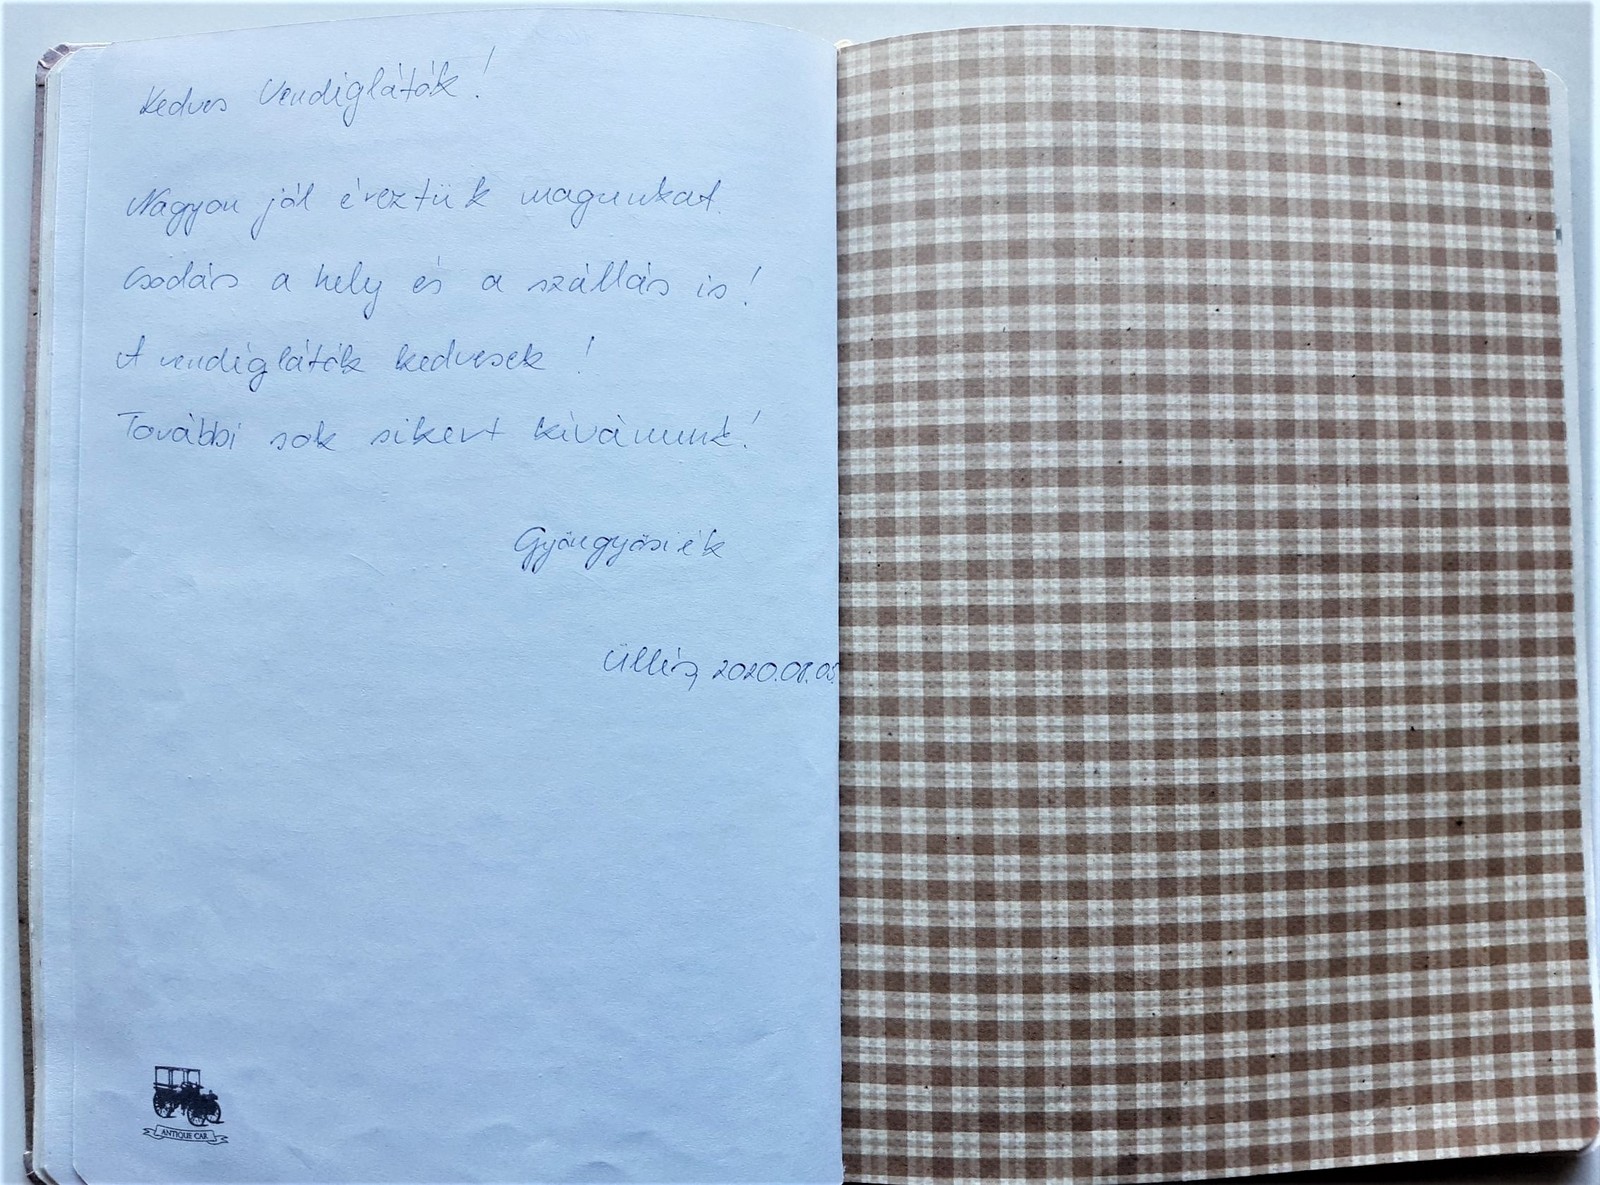 Kedves Vendéglátók!
Nagyon jól éreztük magunkat.
Csodás a hely és a szállás is!
A vendéglátók kedvesek!
További sok sikert kívánunk!
Gyöngyösiék
Üllés, 2020.08.03.
ANTIQUE CAR